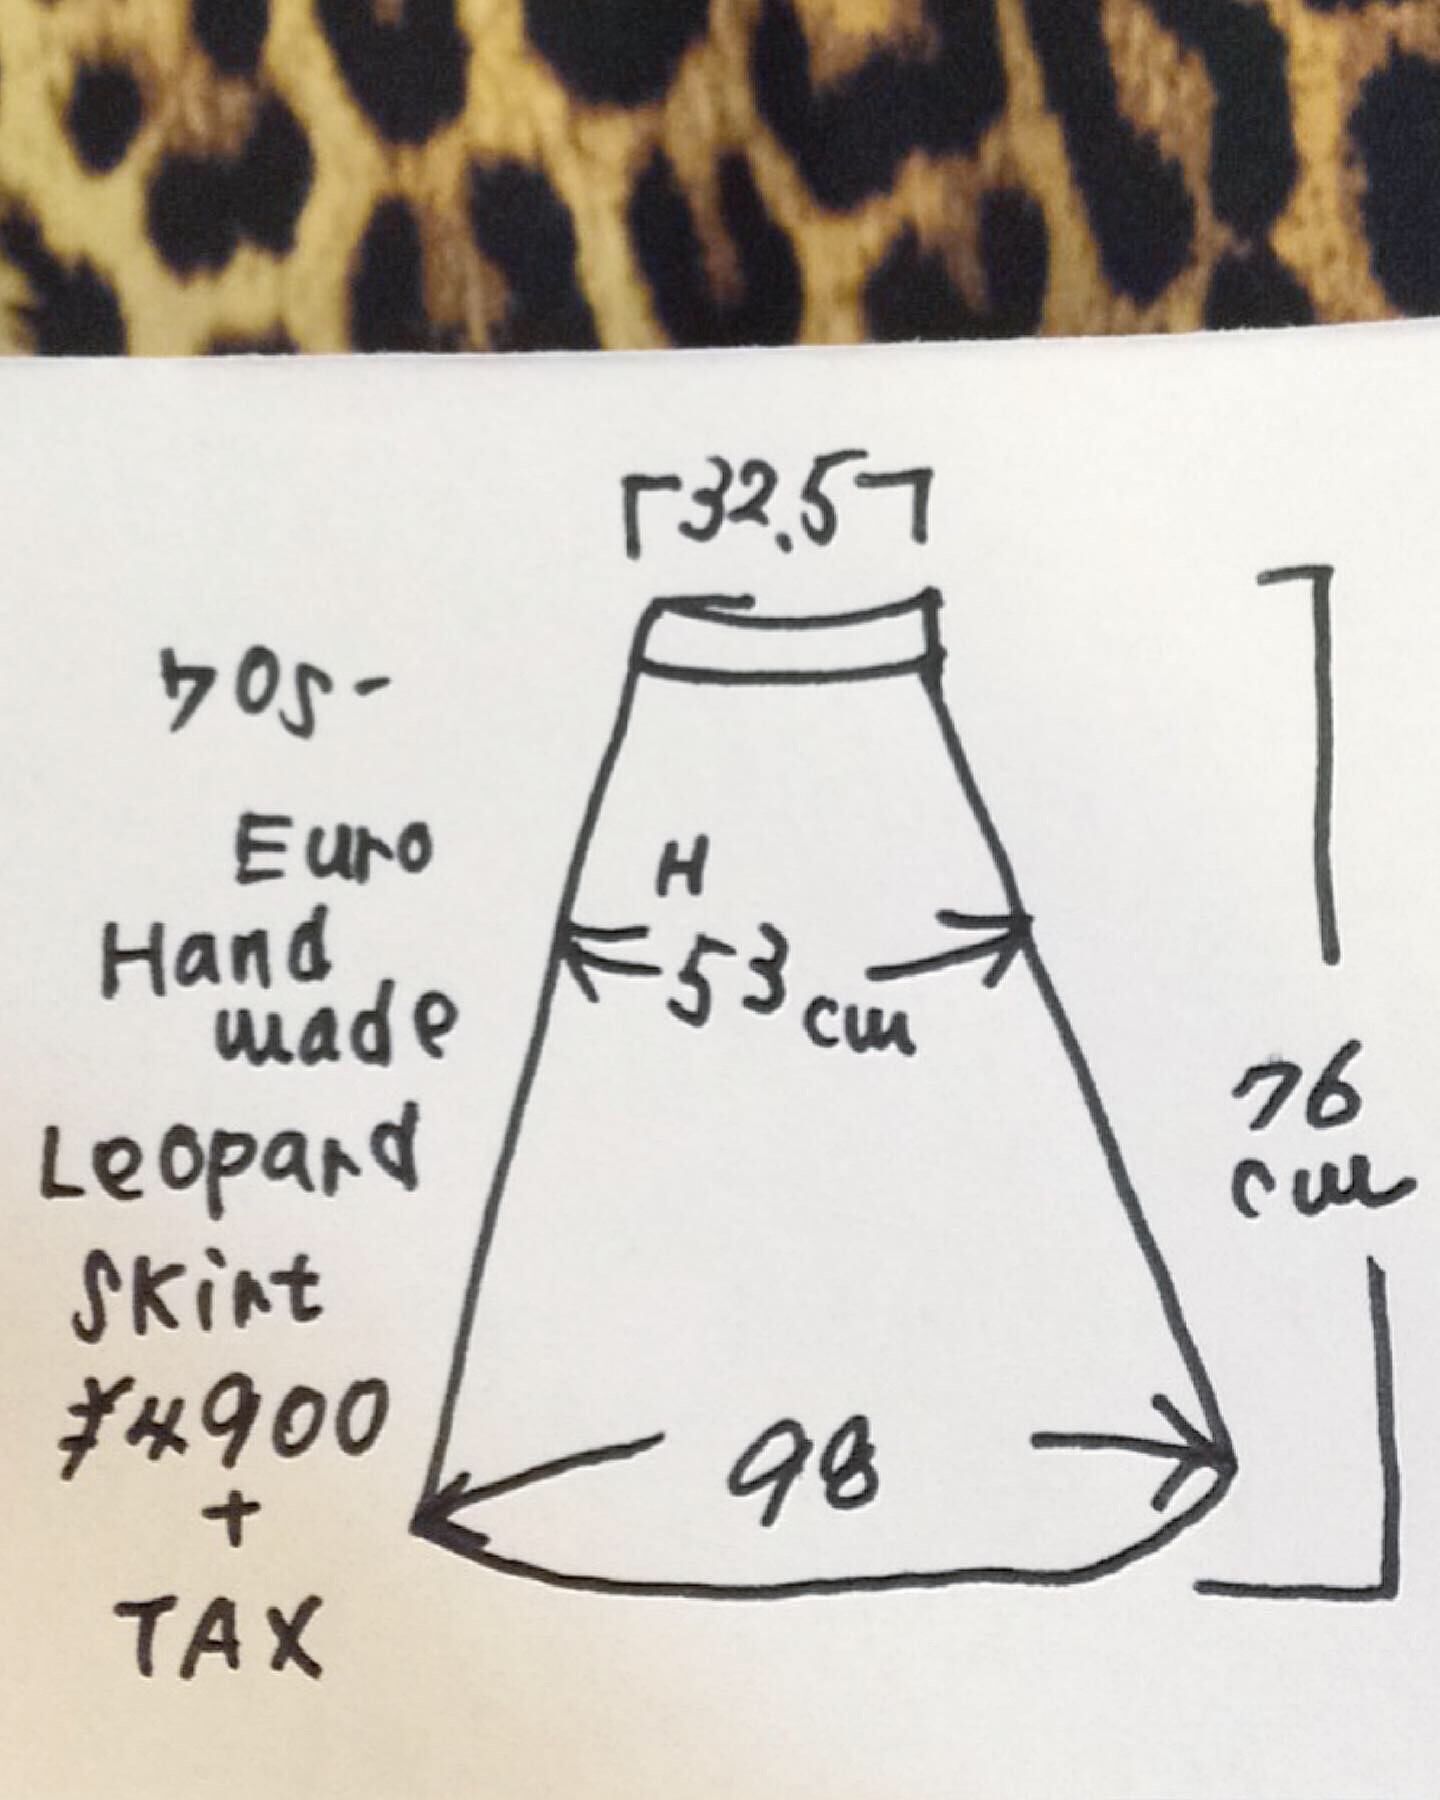 32.5
70s-
Euro
Hand
made
Leopard
Skirt
¥4900
+
TAX
H
53cm
76
cm
98